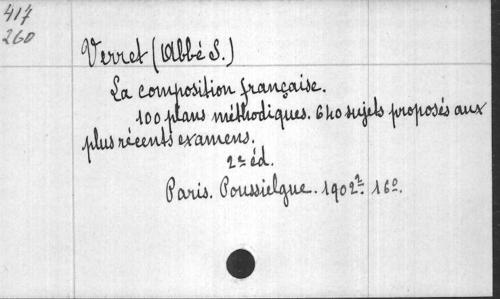 417
260
Verret (Abbé S.)
La composition française.
100 plans méthodiques. 640 sujets proposés aux
plus récents examens.
2e éd.
Paris. Poussielgue. 1902. 16º.